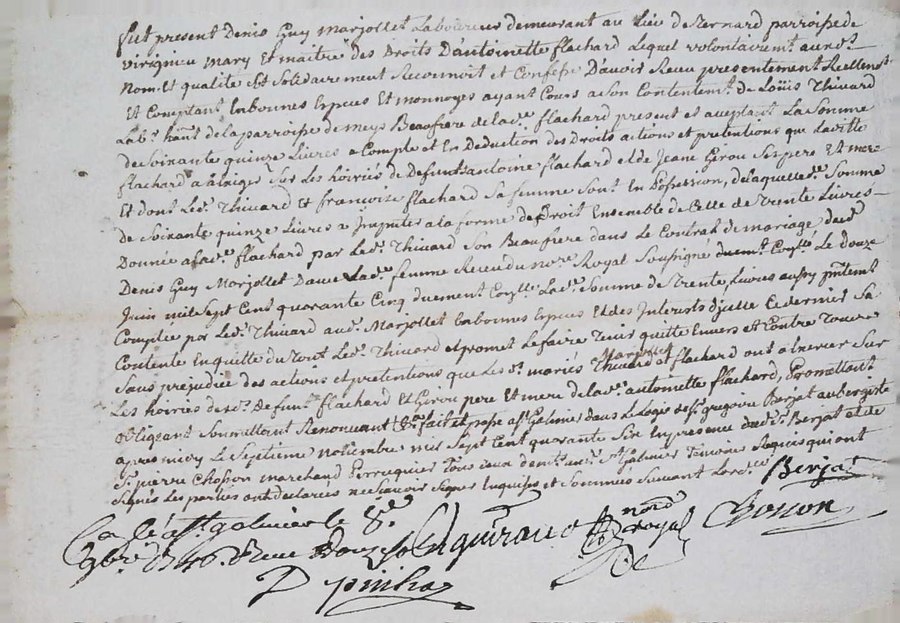 fut present Denis Guy Marjollet Laboureur demeurant au Lieu de Ternard parroisse de
virignieu mary Et maître des Droits D'antoinette flachard Lequel volontairemt. aux dt.
nom et qualité Et Solidairement Reconnoit et Confesse D'avoir Receu presentement Reellemt.
Et Comptant En bonnes Espces Et monnoyes ayant Cours a Son Contentemt. de Loüis Thivard
Labr. hant de la parroisse de meys Beaufrere de lade. flachard present et aceptant La Somme
de Soixante quinze Livres a Compte et En Deduction des Droits actions et pretentions que laditte
flachard a Sur Les hoiries de Defunts antoine flachard et de Jeane Girou Ses pere Et mere
Et dont Led. Thivard et francoise flachard Sa femme Sont En possession, de laquelle de. Somme
de Soixante quinze Livres a Imputer a la forme de Droit Ensemble de Celle de trente Livres
Donnée a lade. flachard par Led. Thivard Son Beaufrere dans Le Contrat de mariage dud.
Denis Guy Marjollet Davec Lade. femme Receu du nore. Royal Soussigné duemt. Conllé Le douze
Juin mil Sept Cent quarante Cinq duement Conllé Lade. Somme de trente Livres aussy pntemt
Comptée par Led. Thivard aud. Marjollet En bonnes Espces Et des Interests d'jcelle Ce dernier Sa
Contente En quitte du tout Led. Thivard et promet Le faire Tenir quitte Envers et Contre tous
Sans prejudice des actions et pretentions que Les de. mariés Marjollet et flachard ont a Exercer Sur
Les hoiries desd. Defunts flachard Et Girou pere Et mere de lade. antoinette flachard, Promettant
obligeant Soumettant Renoncant &a. fait et passé a St. Galmier dans Le Logis de Sr. gregoire Berjat aubergiste
apres midy Le Septieme novembre mil Sept Cent quarante Six En presence dud. Sr. Berjat et de
Sr. pierre Chosson marchand Perruquier Tous deux demt. aud. St. Galmier Temoins Requis qui ont
Signés Les parties ont declarés ne Scavoir Signer Enquises et Sommées Suivant Lordce.
Berjat
Colé a St. galmier le 8e.
9bre. 1746. Receu Douze Sols
nore royal
Chosson